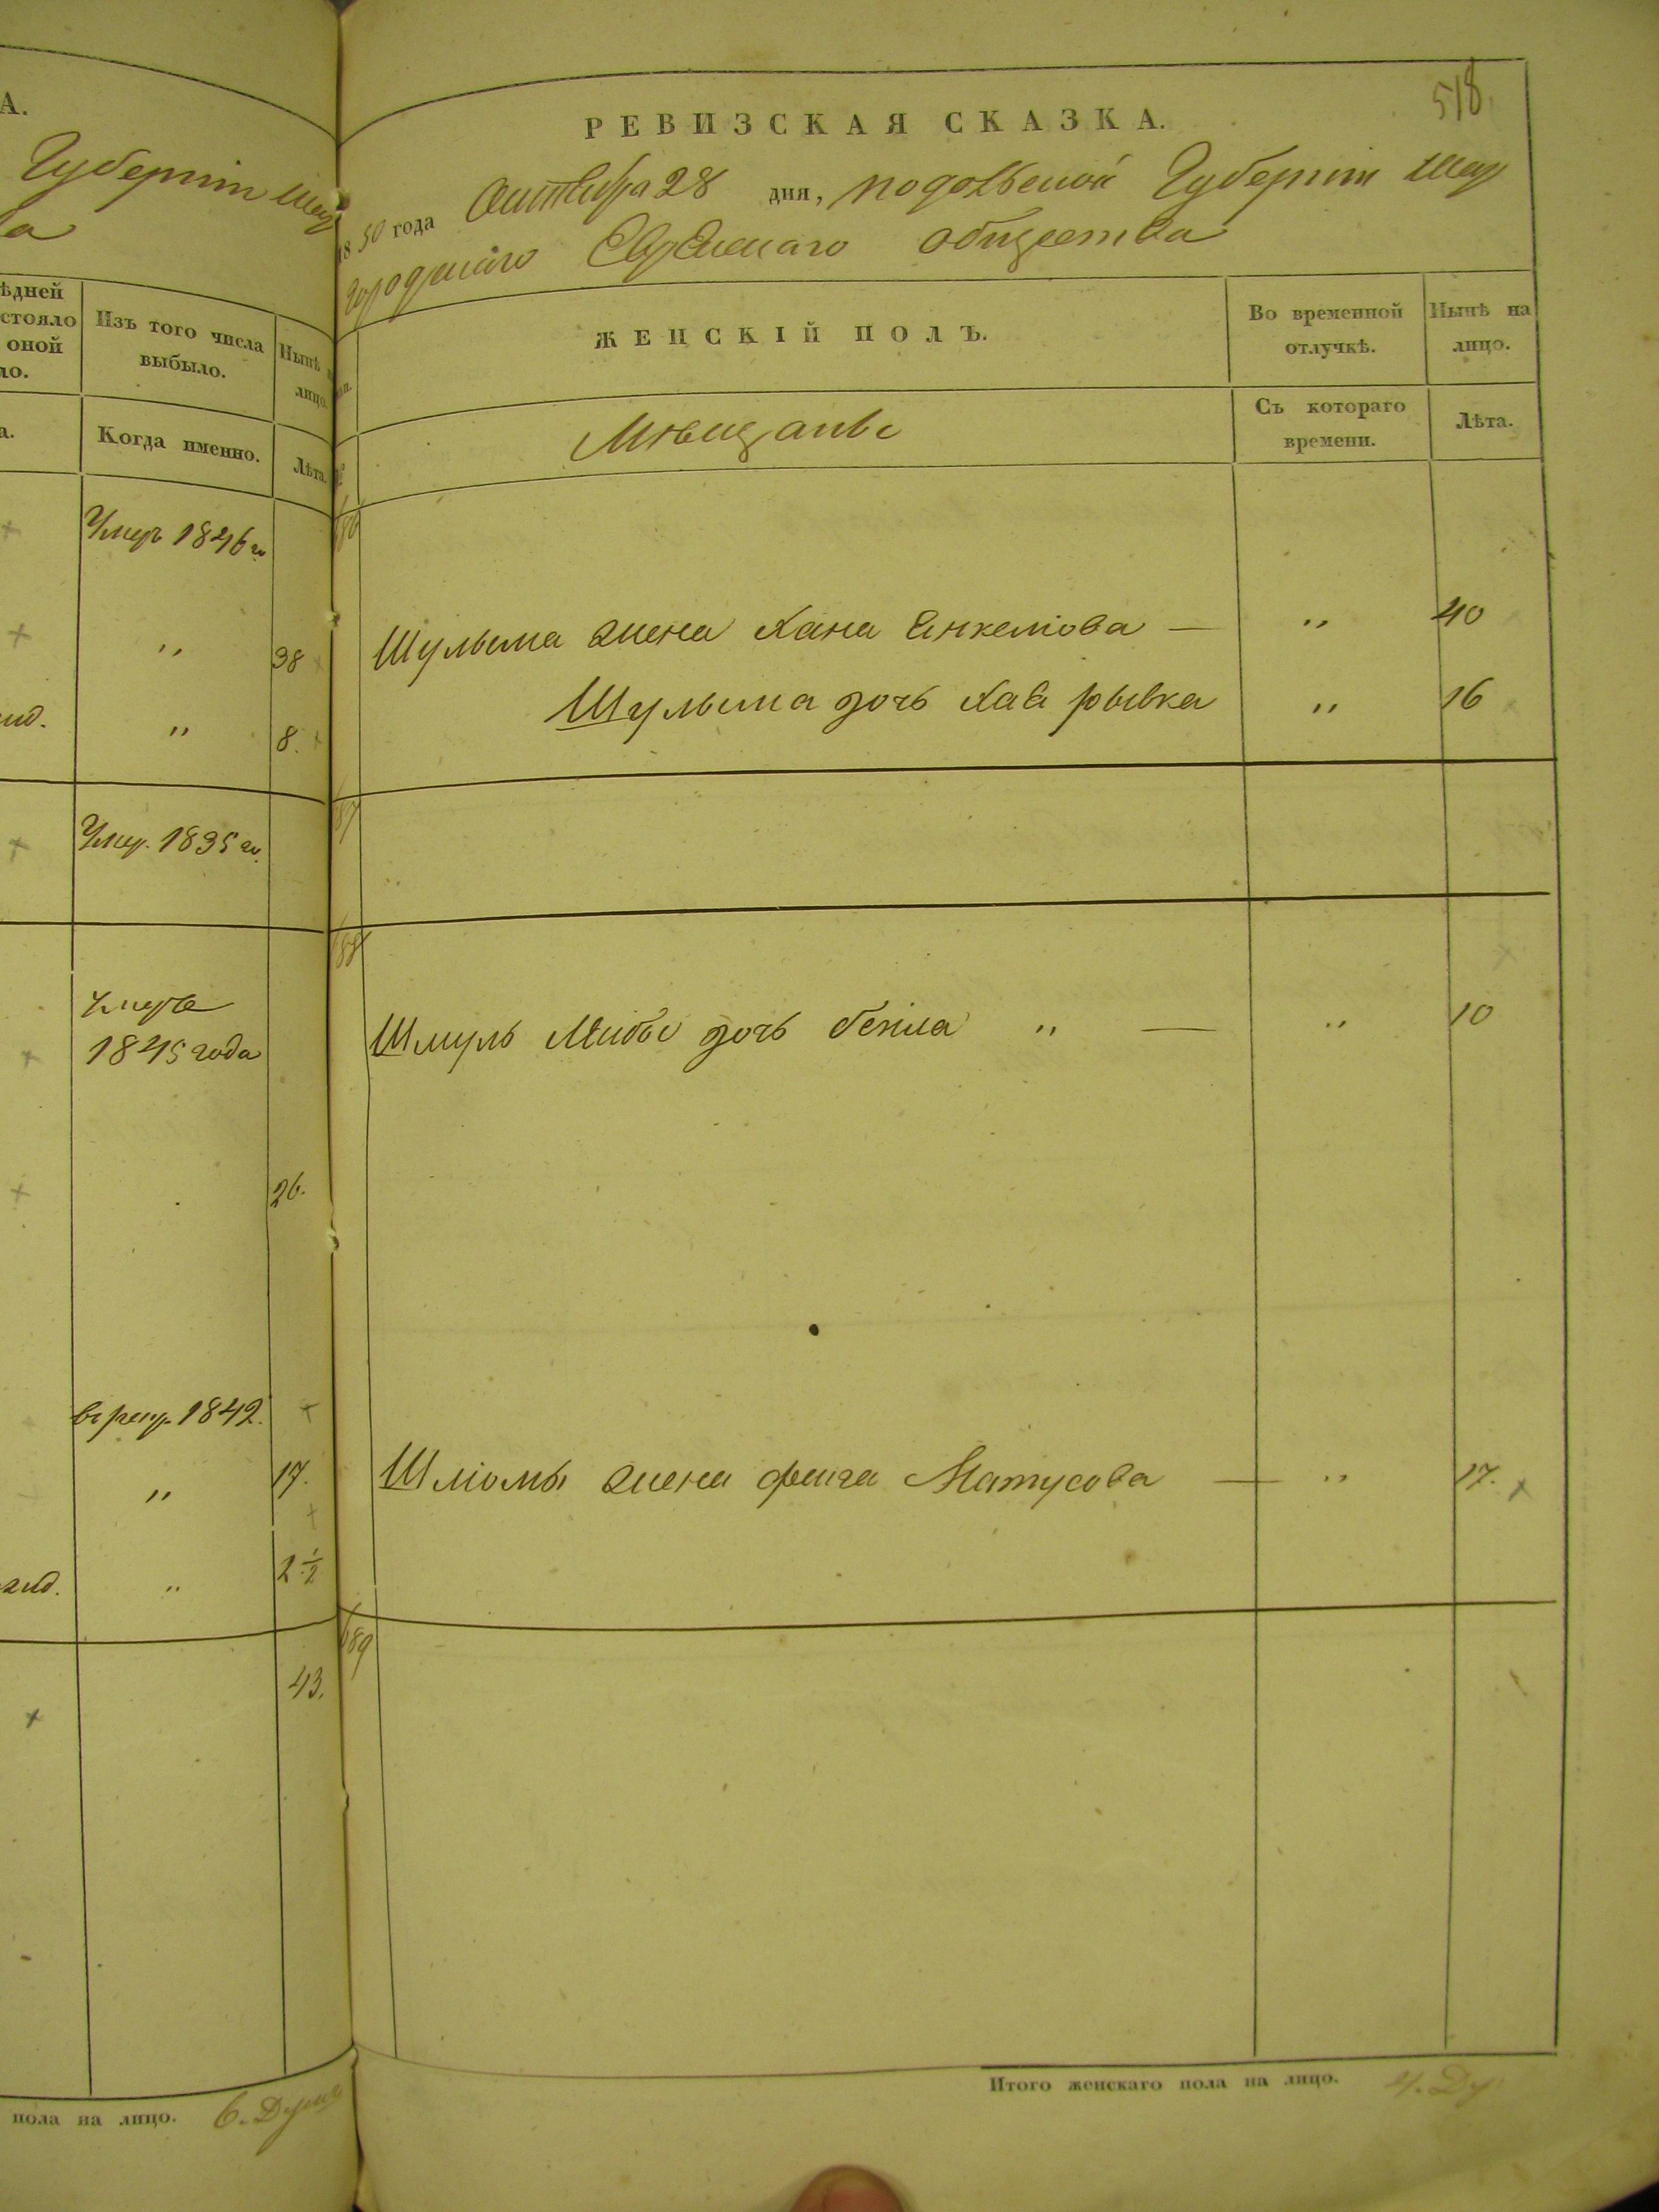 А.
Губерніи Шар
а
ѣдней
стояло
оной
ло.
Изъ того числа
выбыло.
Нынѣ
лицо.
а.
Когда именно.
Лѣта.
Умеръ 1846 го
" 38
" 8.
Умер. 1835 го.
умерь
1845 года
26.
в рекр. 1842.
" 17.
" 2 1/2
43.
пола на лицо. 6. Душъ
518.
РЕВИЗСКАЯ СКАЗКА.
1850 года Октября 28 дня, Подольской Губерніи Шар
городскаго Еврейскаго общества
ЖЕНСКІЙ ПОЛЪ.
Во временной
отлучкѣ.
Нынѣ на
лицо.
Мѣщанѣ
Съ котораго
времени.
Лѣта.
686
Шульима жена Хана Янкеліова — " 40
Шульима дочь Хая рывка " 16
687
688
Шмуль дочь бейла " — " 10
Шліомы жена фейга Матусова — " 17.
689
Итого женскаго пола на лицо. 4. Ду